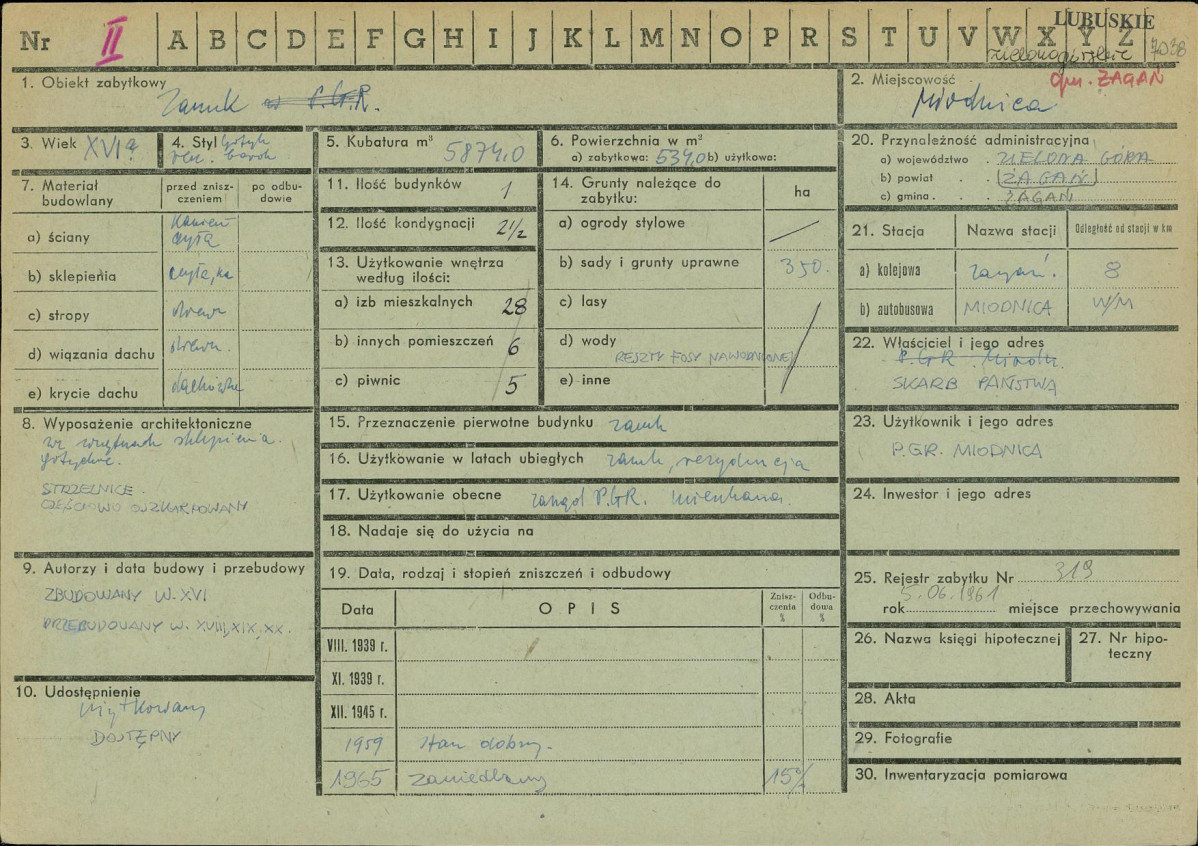 LUBUSKIE
Nr II A B C D E F G H I J K L M N O P R S T U V W X Y Z 7038
zielonogórskie
gm. ŻAGAŃ
1. Obiekt zabytkowy
Zamek w P.G.R.
2. Miejscowość
Miodnica
3. Wiek XVI?
4. Styl gotyk
ren. barok
5. Kubatura m³ 5874,0
6. Powierzchnia w m²
a) zabytkowa: 534,0 b) użytkowa:
7. Materiał budowlany
przed zniszczeniem
po odbudowie
a) ściany
kamień
cegła
b) sklepienia cegła, ka
c) stropy drewn
d) wiązania dachu drewn.
e) krycie dachu dachówka
8. Wyposażenie architektoniczne
we wnętrzach sklepienia
gotyckie.
STRZELNICE.
CZĘŚCIOWO OSZKARPOWANY
9. Autorzy i data budowy i przebudowy
ZBUDOWANY W. XVI
PRZEBUDOWANY W. XVIII, XIX, XX.
10. Udostępnienie
użytkowany
DOSTĘPNY
11. Ilość budynków 1
12. Ilość kondygnacji 2 1/2
13. Użytkowanie wnętrza
według ilości:
a) izb mieszkalnych 28
b) innych pomieszczeń 6
c) piwnic 5
14. Grunty należące do
zabytku:
ha
a) ogrody stylowe
b) sady i grunty uprawne 350.
c) lasy
d) wody
RESZTY FOSY NAWODNIONEJ
e) inne
15. Przeznaczenie pierwotne budynku zamek
16. Użytkowanie w latach ubiegłych zamek, rezydencja
17. Użytkowanie obecne zarząd P.G.R. mieszkania.
18. Nadaje się do użycia na
19. Data, rodzaj i stopień zniszczeń i odbudowy
Data
OPIS
Zniszczenia %
Odbudowa %
VIII. 1939 r.
XI. 1939 r.
XII. 1945 r.
1959 stan dobry.
1965 zaniedbany 15%
20. Przynależność administracyjna
a) województwo . ZIELONA GÓRA
b) powiat . . ŻAGAŃ
c) gmina . . . ŻAGAŃ
21. Stacja
Nazwa stacji
Odległość od stacji w km
a) kolejowa Żagań. 8
b) autobusowa MIODNICA W/M
22. Właściciel i jego adres
P.G.R. Miodn.
SKARB PAŃSTWA
23. Użytkownik i jego adres
P.G.R. MIODNICA
24. Inwestor i jego adres
25. Rejestr zabytku Nr 319
5.06.1961
rok miejsce przechowywania
26. Nazwa księgi hipotecznej
27. Nr hipoteczny
28. Akta
29. Fotografie
30. Inwentaryzacja pomiarowa